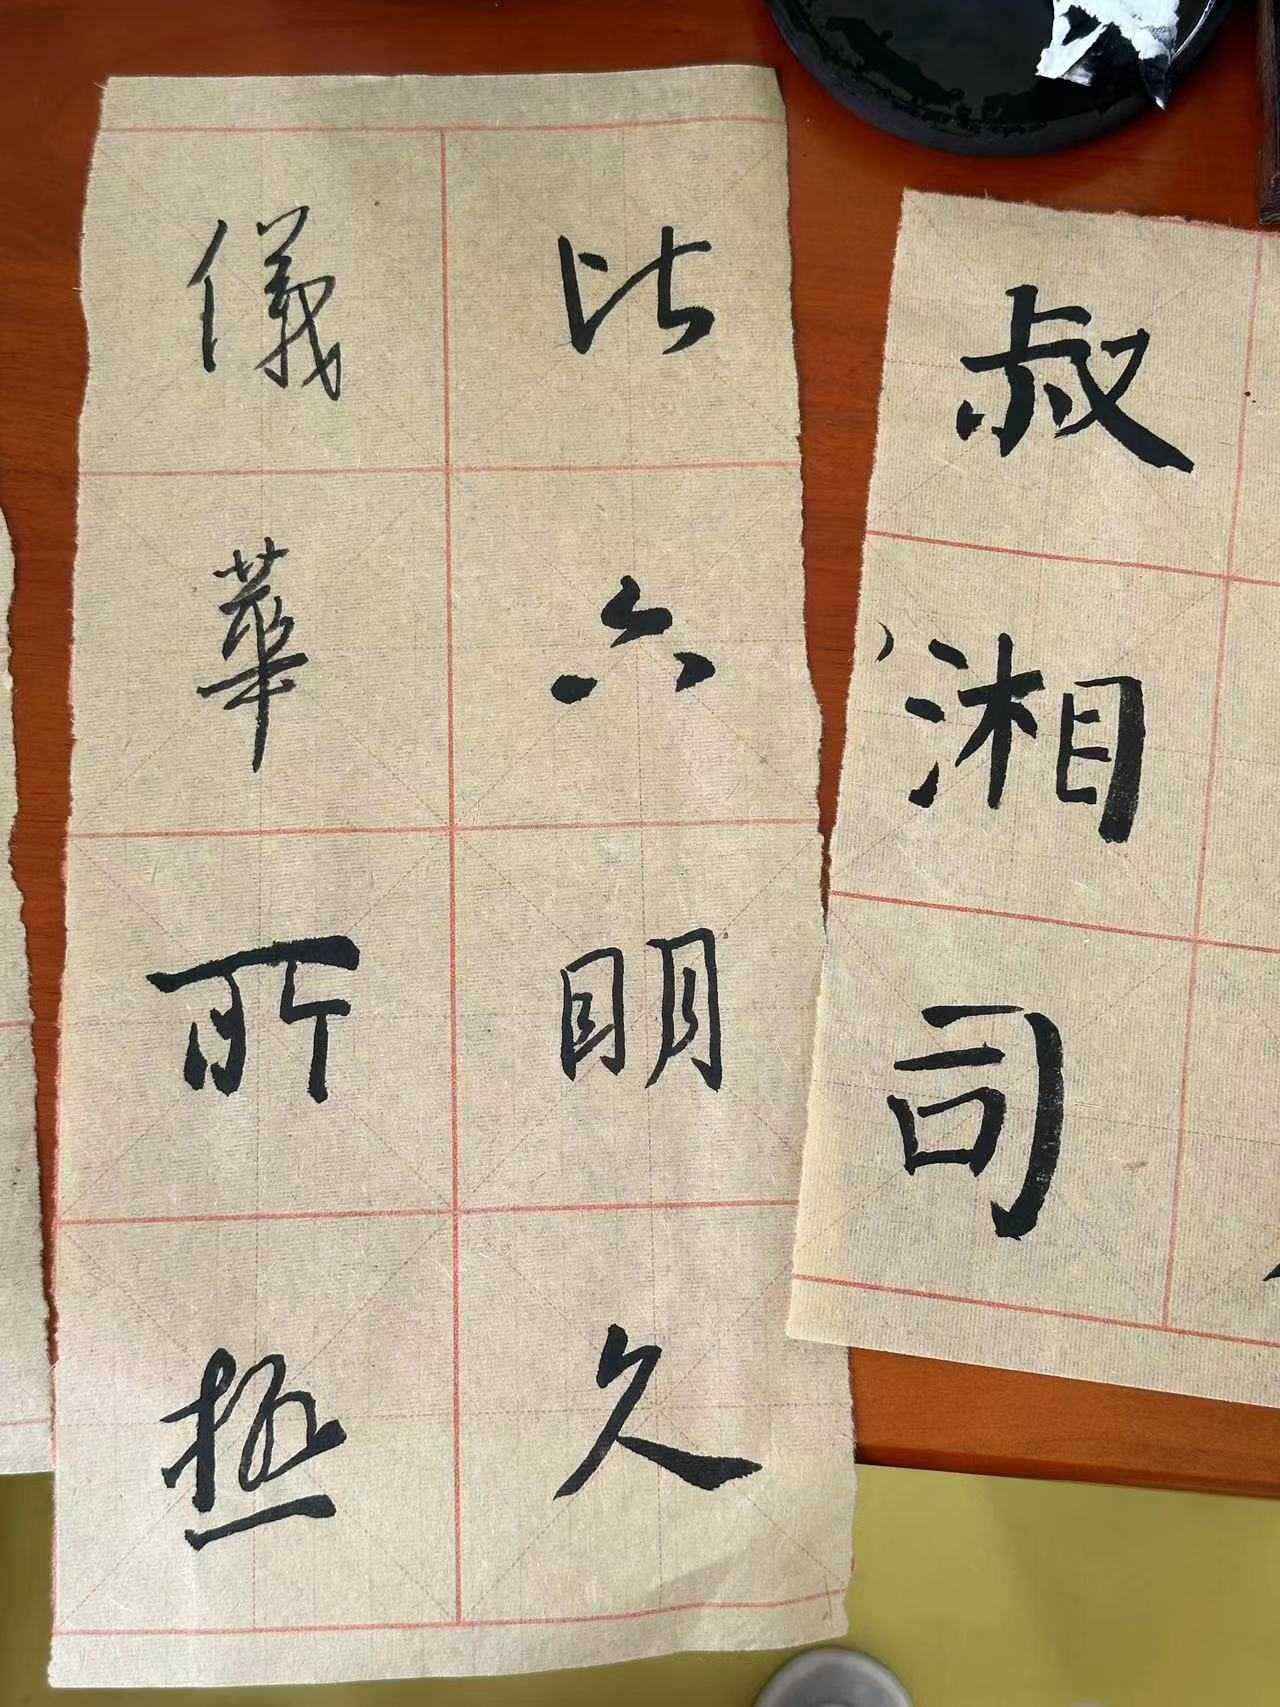 叔湘司
比六明久
儀華所極